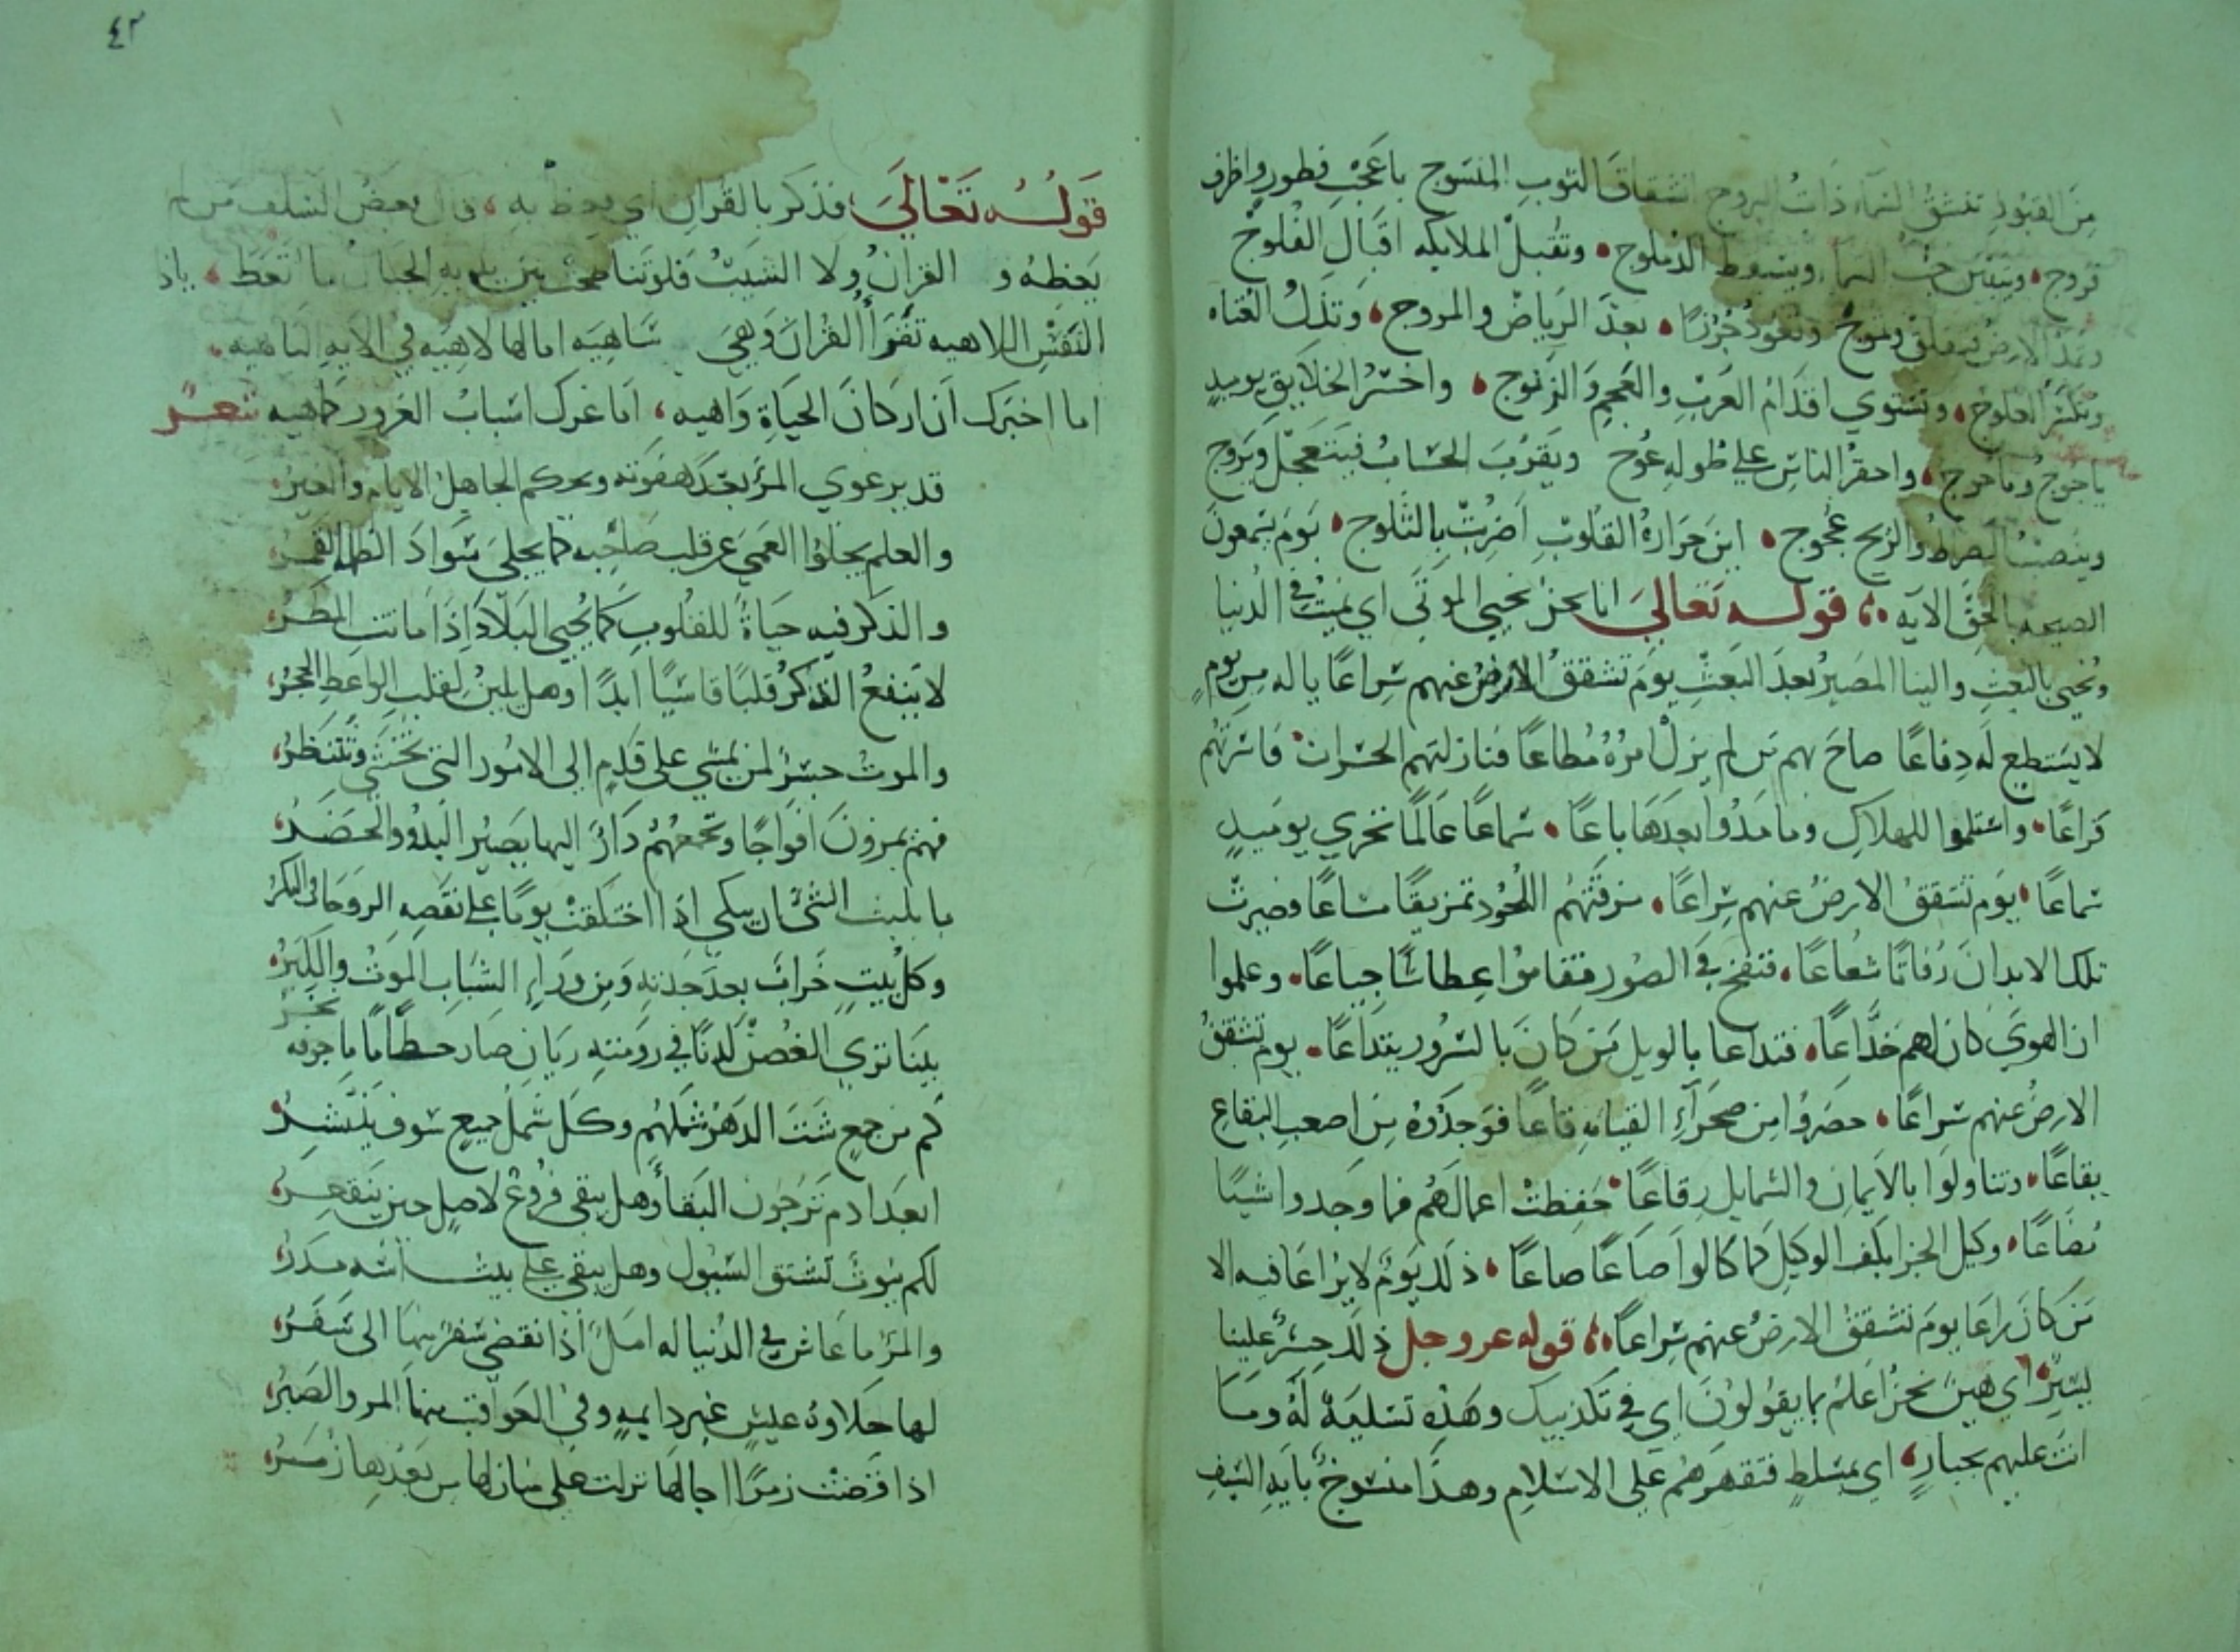 من القبور تنشق السماء ذات البروج انشقاق الثوب المنسوج باعجب فطور واظرف
فروج وتقبل الملايكه اقبال الفلوج
وتمد الارض وتعود جرزا بعد الرياض والمروج وتذل العتاه
وتستوي اقدام العرب والعجم والزنوج واخسر الخلايق يوميذ
ياجوج وماجوج واحقر الناس على طوله عوج ويقرب الحساب فيتعجل ويروج
وينصب الصراط والريح عجوج اين حرارة القلوب اضربت بالثلوج يوم يسمعون
الصيحه بالحق الايه قوله تعالى انا نحن نحيي الموتى اي نميت في الدنيا
ونحيي بالبعث والينا المصير بعد البعث يوم تشقق الارض عنهم سراعا ياله من يوم
لا يستطيع له دفاعا صاح بهم من لم يزل امره مطاعا فنازلتهم الحسرات فاسرتهم
كراعا واستلموا للهلاك وما مدوا بعدها باعا سماعا عالما تخري يوميذ
سماعا يوم تشقق الارض عنهم سراعا مزقتهم اللحود تمزيقا مشاعا وصيرت
تلك الابدان رفاتا شعاعا فنفخ في الصور فقاموا عطاشا جياعا وعلموا
ان الهوى كان لهم خداعا فتداعا بالويل من كان بالسرور يتداعا يوم تشقق
الارض عنهم سراعا حضروا من صحراء القيامه قاعا فوجدوه من اصعب البقاع
بقاعا وتناولوا بالايمان والشمايل رقاعا حفظت اعمالهم فما وجدوا شيا
مضاعا وكيل الجزا بكف الوكيل كما كالوا صاعا صاعا ذلك يوم لا يراعا فيه الا
من كان راعا يوم تشقق الارض عنهم سراعا قوله عز وجل ذلك حشر علينا
يسير اي هين نحن اعلم بما يقولون اي في تكذيبك وهذه تسلية له وما
انت عليهم بجبار اي بمسلط فتقهرهم على الاسلام وهذا منسوخ بايه السيف
٤٢
قوله تعالى فذكر بالقران اي يعظ به قال بعض السلف من لم
يعظه القران ولا الشيب فلو تناطحت بين يديه الجبال ما اتعظ ياذا
النفس اللاهيه تقرا القران وهي ساهيه امالها لاهيه في الايه الناهيه
اما اخبرك ان اركان الحياة واهيه اما غرك اسباب الغرور كماهيه شعر
قد يرعوي المرء بعد هفوته ويحكم الجاهل الايام والعبر
والعلم يجلوا العمى عن قلب صاحبه كما يجلى سواد الظلمه القمر
والذكر فيه حياة للقلوب كما يحيي البلاد اذا ما اتت المطر
لا ينفع الذكر قلبا قاسيا ابدا وهل يلين لقلب الواعظ الحجر
والموت جسر لمن يمشي على قدم الى الامور التي تخشى وتنتظر
فهم يمرون افواجا وتجمعهم دار اليها يصير البدو والحضر
ما يلبث الشي ان يبكي اذا اختلفت يوما على نقصه الروحات والبكر
وكل بيت خراب بعد جدته ومن وراء الشباب الموت والكبر
بينا ترى الغصن لدنا في رومته ريان صار حطاما ما جوفه نخر
كم من جميع شتت الدهر شملهم وكل شمل جميع سوف ينتشر
ابعد ادم ترجون البقا وهل يبقى فروع لاصل حين ينقعر
لكم بيوت تستق السيول وهل يبقى على بيت اسه مدر
والمرء ما عاش في الدنيا له امل اذا انقضى سفر منها الى سفر
لها حلاوه عيش غير دايمه وفي العواقب منها المر والصبر
اذا قضت زمرا اجالها نزلت على منازلها من بعدها زمر